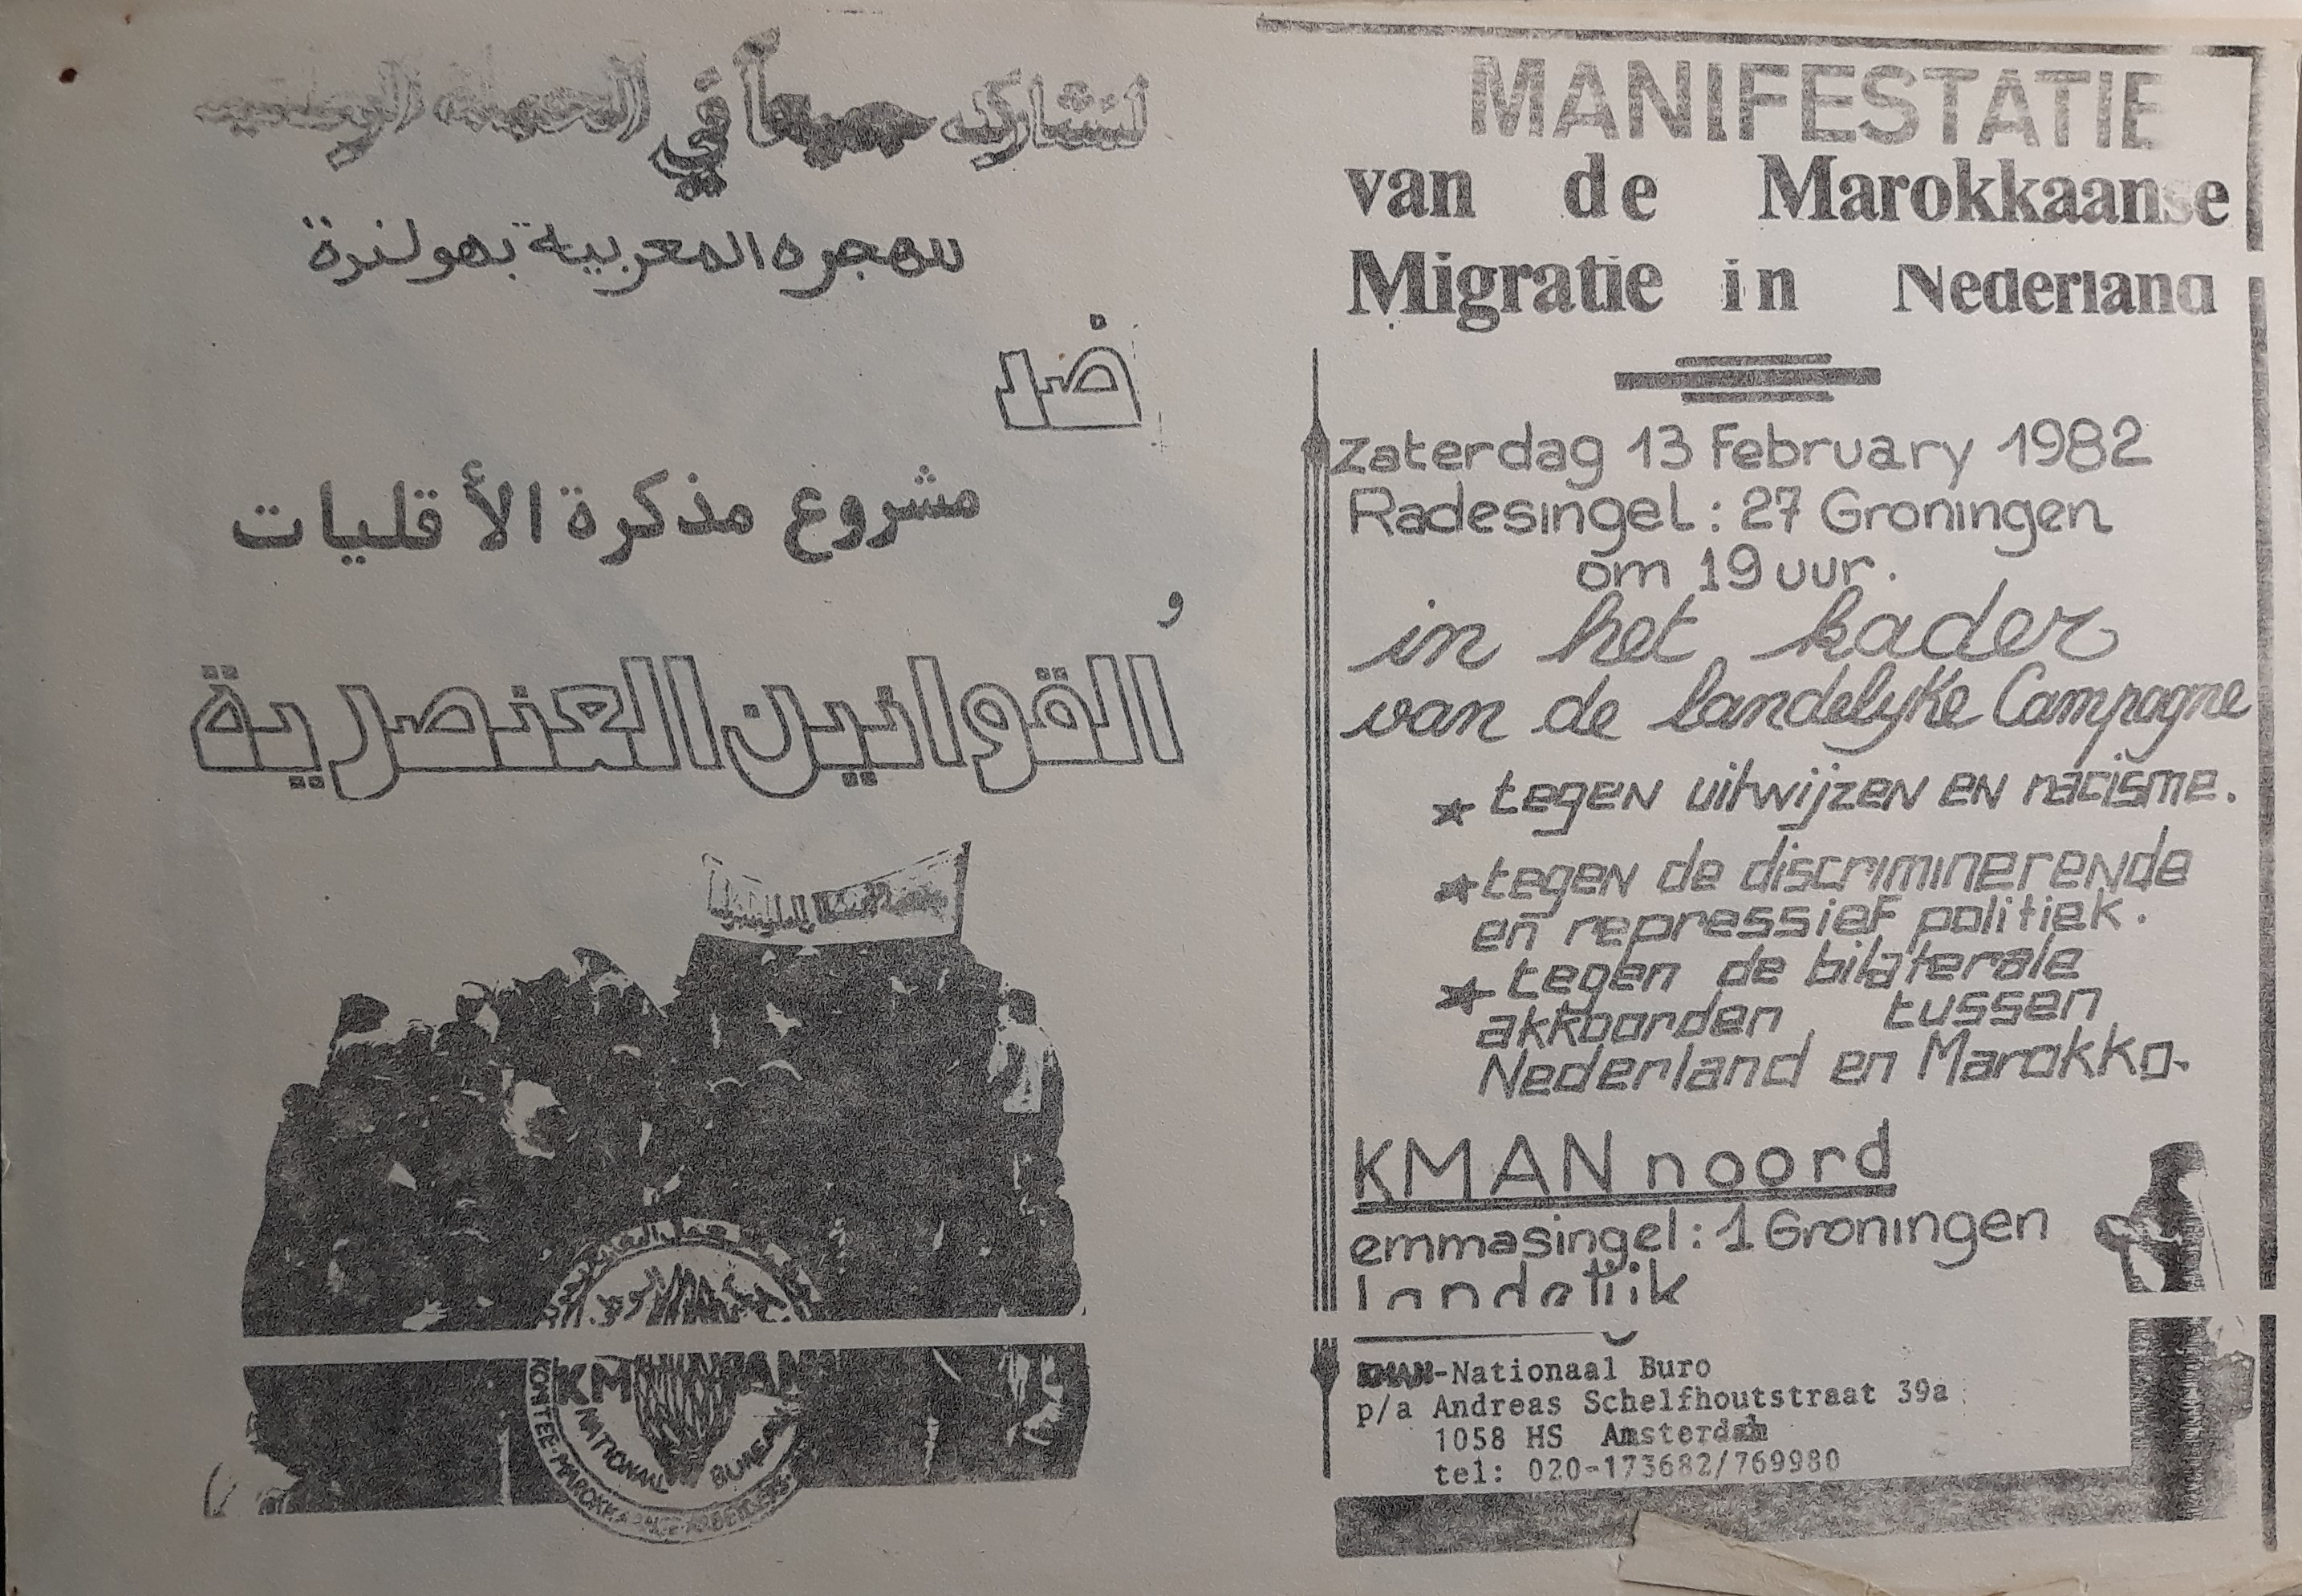 لنشارك جميعاً في الحملة الوطنية
للهجرة المغربية بهولندة
ضد
مشروع مذكرة الأقليات
و
القوانين العنصرية
KMAN
NATIONAAL BUREAU
KOMITEE MAROKKAANSE ARBEIDERS
MANIFESTATIE
van de Marokkaanse
Migratie in Nederland
zaterdag 13 February 1982
Radesingel: 27 Groningen
om 19 uur.
in het kader
van de landelyke Campagne
★ tegen uitwijzen en racisme.
★ tegen de discriminerende
en repressief politiek.
★ tegen de bilaterale
akkoorden tussen
Nederland en Marokko.
KMAN noord
emmasingel: 1 Groningen
landelijk
KMAN-Nationaal Buro
p/a Andreas Schelfhoutstraat 39a
1058 HS Amsterdam
tel: 020-173682/769980